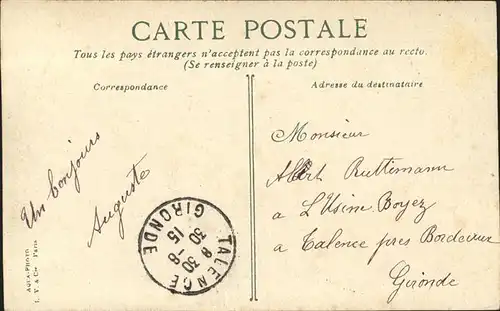 CARTE POSTALE
Tous les pays étrangers n'acceptent pas la correspondance au recto.
(Se renseigner à la poste)
Correspondance
Adresse du destinataire
Un bonjours
Auguste
Monsieur
Albert Ruttimann
a L'Usine Boyez
a Talence pres Bordeaux
Gironde
TALENCE
GIRONDE
8
30 -8
15
AQUA-PHOTO
L. V. & Cie Paris